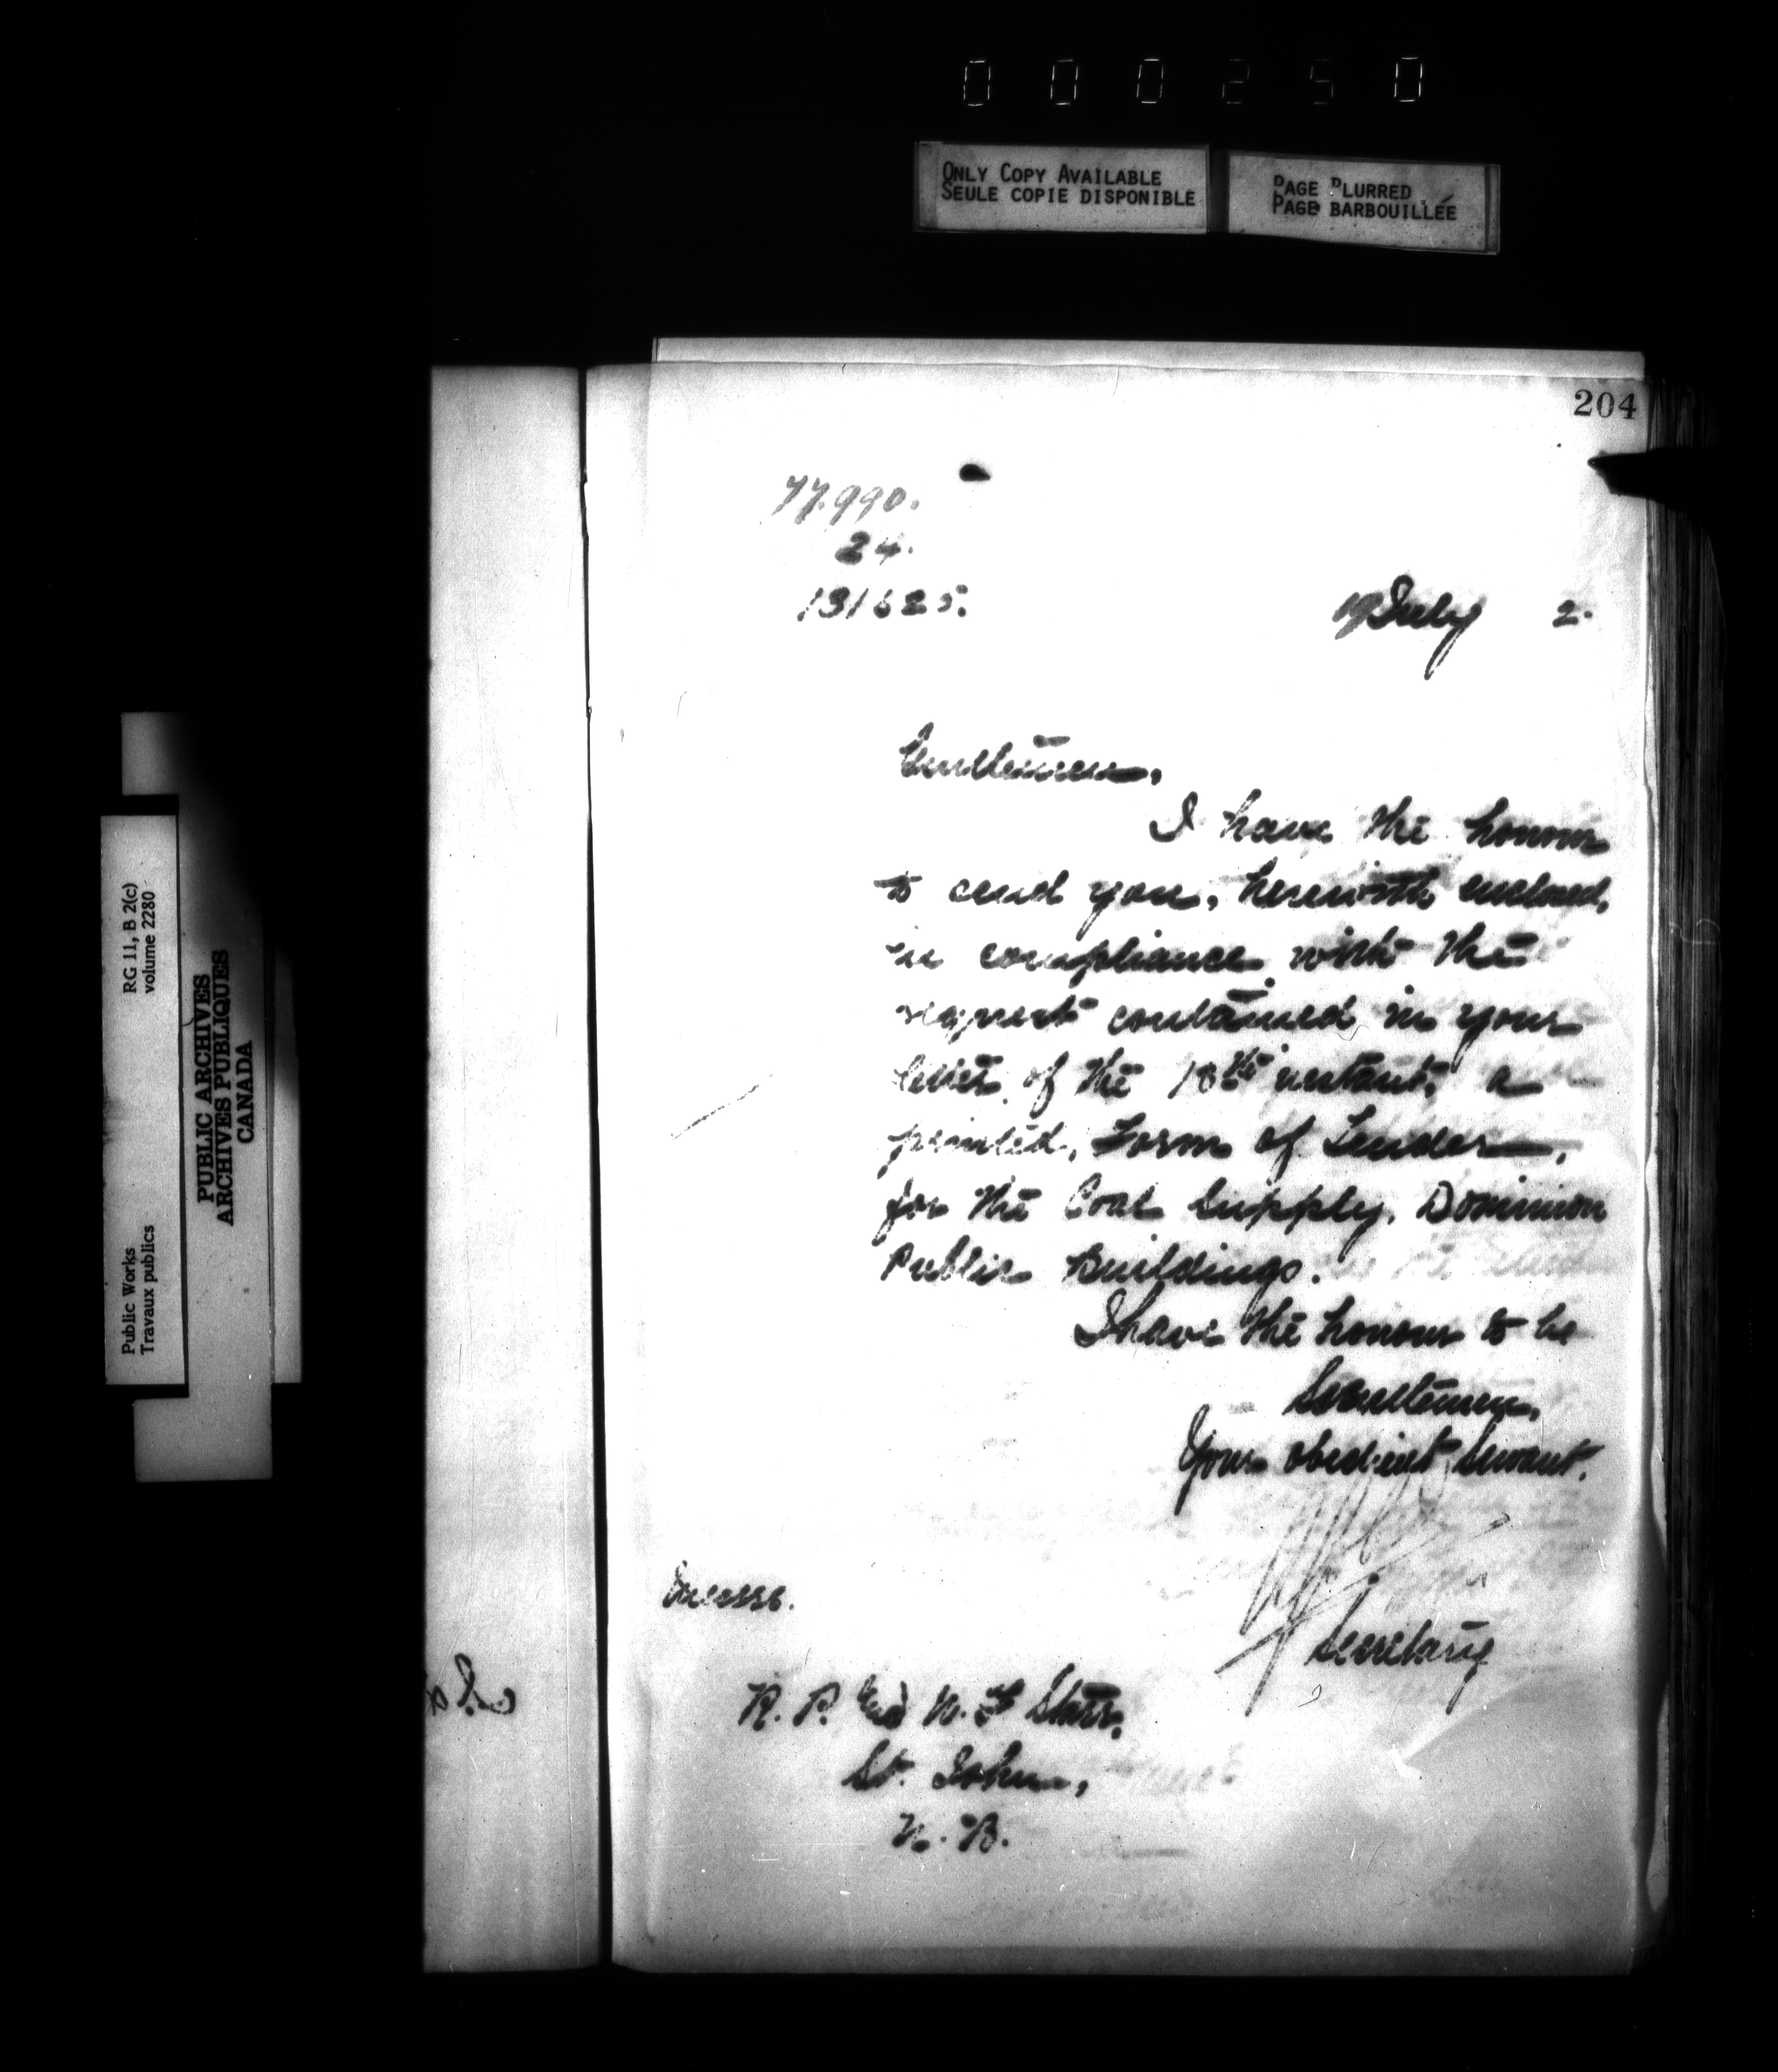 000250
ONLY COPY AVAILABLE
SEULE COPIE DISPONIBLE
PAGE BLURRED
PAGE BARBOUILLÉE
204
77.990.
24.
131625.
19 July 2.
Gentlemen,
I have the honour
to send you, herewith enclosed,
in compliance with the
request contained in your
letter of the 18th instant, a
printed, Form of Tender,
for the Coal Supply, Dominion
Public Buildings.
I have the honour to be
Gentlemen,
Your obedient Servant.
Secretary
Messrs.
R. P. and W. F. Starr,
St. John,
N. B.
Public Works
Travaux publics
RG 11, B 2(c)
volume 2280
PUBLIC ARCHIVES
ARCHIVES PUBLIQUES
CANADA